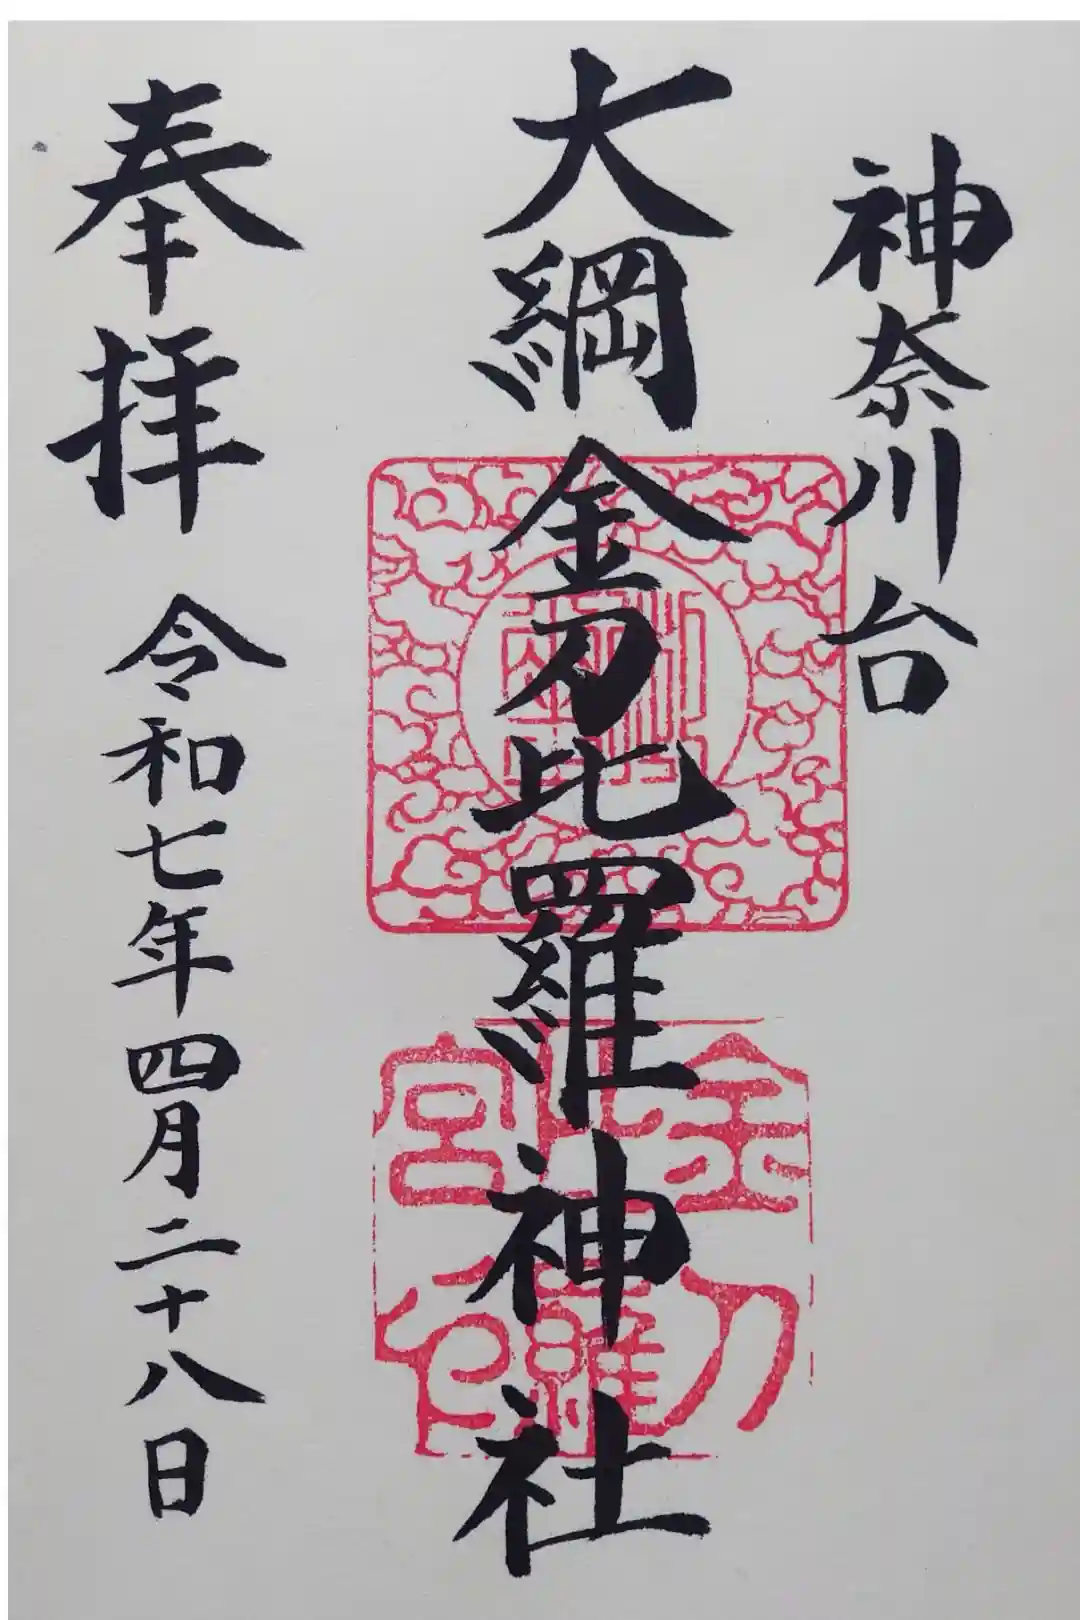 神奈川台
大綱金刀比羅神社
奉拝 令和七年四月二十八日
金刀
比羅
宮